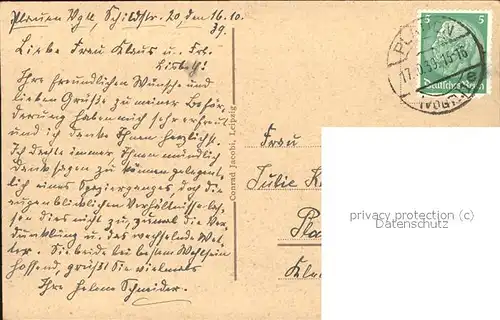 Plauen Vgtl, Schildstr. 20, den 16.10.
39.
Liebe Frau Klaus u. Frl.
Lisbeth!
Ihre freundlichen Wünsche und
lieben Grüße zu meiner Beför-
derung haben mich sehr erfreut
und ich danke Ihnen herzlichst.
Ich dachte immer, Ihnen mündlich
Dank sagen zu können gelegent-
lich eines Spazierganges, doch die
augenblicklichen Verhältnisse las-
sen dies nicht zu, zumal die Ver-
dunklung u. das wechselnde Wet-
ter. Sie beide bei bestem Wohlsein
hoffend, grüßt Sie vielmals
Ihre Helene Schneider.
Conrad Jacobi, Leipzig
PLAUEN
(VOGTL)
5 5
Deutsches Reich
Frau
Julie
Pla
privacy protection (c)
Datenschutz